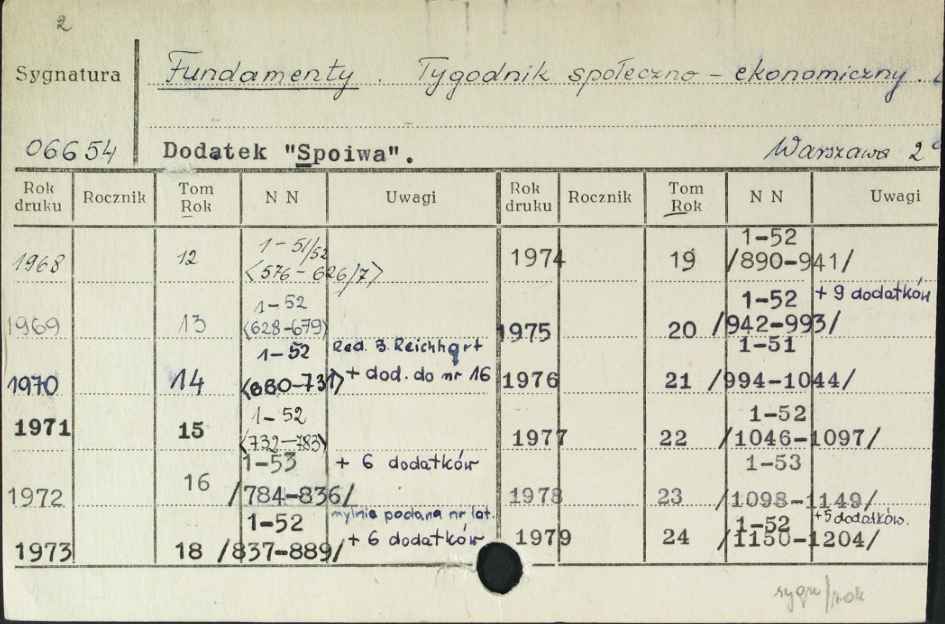 2
Sygnatura Fundamenty. Tygodnik społeczno-ekonomiczny.
06654 Dodatek "Spoiwa". Warszawa 2°
Rok druku Rocznik Tom Rok NN Uwagi Rok druku Rocznik Tom Rok NN Uwagi
1968 12 1-51/52 <576-626/7> 1974 19 1-52 /890-941/
1969 13 1-52 <628-679> 1975 20 1-52 /942-993/ + 9 dodatków
1970 14 1-52 <680-731> Red. B. Reichhart + dod. do nr 16 1976 21 1-51 /994-1044/
1971 15 1-52 <732-783> 1977 22 1-52 /1046-1097/
1972 16 1-53 /784-836/ + 6 dodatków 1978 23 1-53 /1098-1149/
1973 18 1-52 /837-889/ mylnie podana nr lat. + 6 dodatków 1979 24 1-52 /1150-1204/ +5 dodatków.